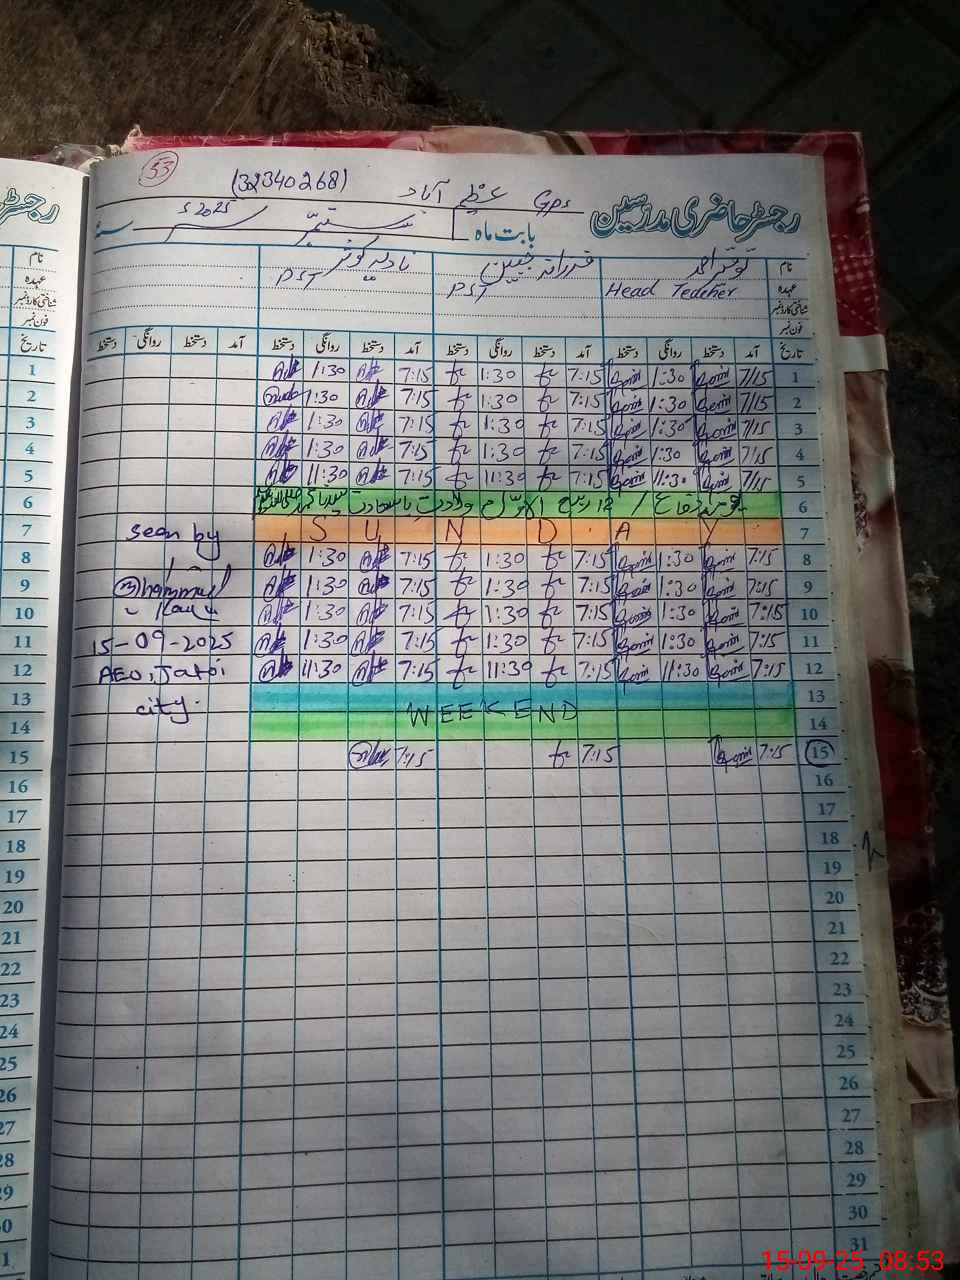 53
(32340268)
رجسٹر حاضری مدرسین Gps عظیم آباد
بابت ماہ ستمبر سن 2025ء
نام توقیر احمد فرزانہ جبین نادیہ کوثر
عہدہ Head Teacher PST PST
شناختی کارڈ نمبر
فون نمبر
تاریخ آمد دستخط روانگی دستخط آمد دستخط روانگی دستخط آمد دستخط روانگی دستخط آمد دستخط روانگی دستخط
1 7/15 1:30 7:15 1:30 7:15 1:30
2 7/15 1:30 7:15 1:30 7:15 1:30
3 7/15 1:30 7:15 1:30 7:15 1:30
4 7/15 1:30 7:15 1:30 7:15 1:30
5 7:15 11:30 7:15 11:30 7:15 11:30
6 / 12 ربیع الاول ولادت باسعادت
7 SUNDAY
8 7:15 1:30 7:15 1:30 7:15 1:30
9 7:15 1:30 7:15 1:30 7:15 1:30
10 7:15 1:30 7:15 1:30 7:15 1:30
11 7:15 1:30 7:15 1:30 7:15 1:30
12 7:15 11:30 7:15 11:30 7:15 11:30
13
WEEKEND
14
15 7:15 7:15 7:15
16
17
18
19
20
21
22
23
24
25
26
27
28
29
30
31
seen by
15-09-2025
AEO, Jatoi
city.
15-09-25 08:53